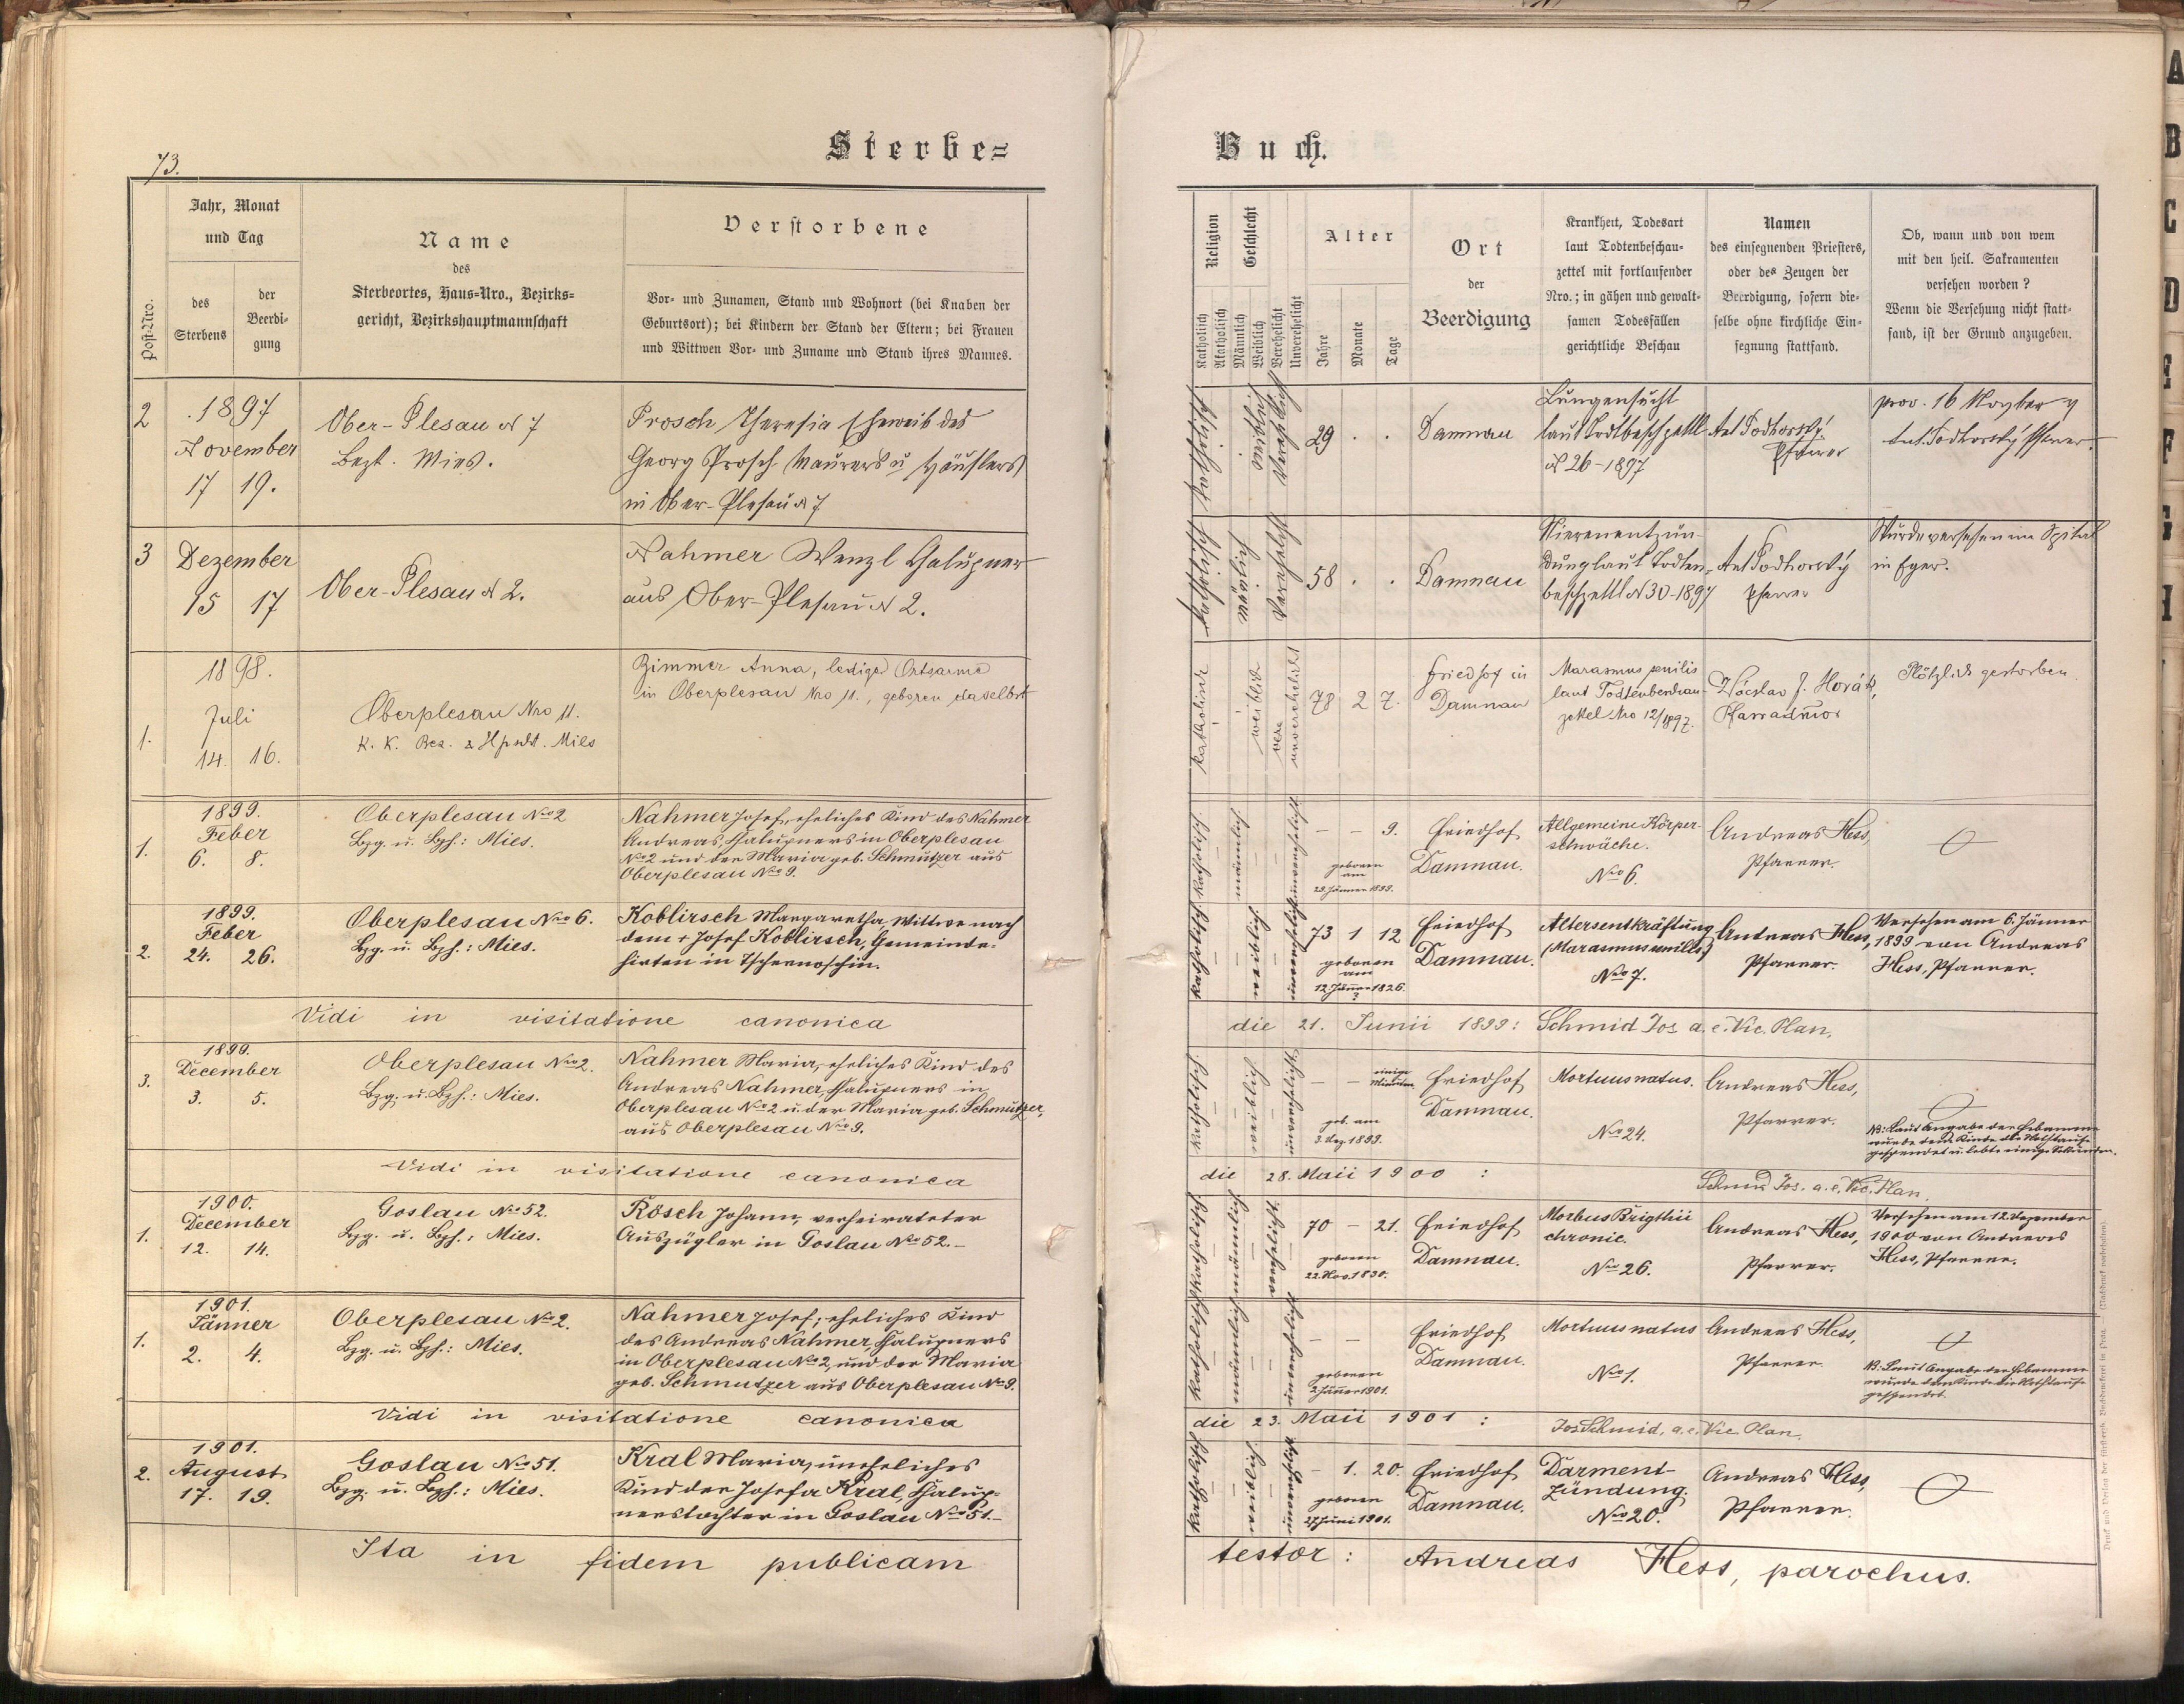 73.
Sterbe=
Buch.
Post-Nro.
Jahr, Monat
und Tag
des
Sterbens
der
Beerdi-
gung
Name
des
Sterbeortes, Haus-Nro., Bezirks-
gericht, Bezirkshauptmannschaft
Verstorbene
Vor- und Zunamen, Stand und Wohnort (bei Knaben der
Geburtsort); bei Kindern der Stand der Eltern; bei Frauen
und Wittwen Vor- und Zuname und Stand ihres Mannes.
Religion
Katholisch
Akatholisch
Geschlecht
Männlich
Weiblich
Verehelicht
Unverehelicht
Alter
Jahre
Monate
Tage
Ort
der
Beerdigung
Krankheit, Todesart
laut Todtenbeschau-
zettel mit fortlaufender
Nro.; in gähen und gewalt-
samen Todesfällen
gerichtliche Beschau
Namen
des einsegnenden Priesters,
oder des Zeugen der
Beerdigung, sofern die-
selbe ohne kirchliche Ein-
segnung stattfand.
Ob, wann und von wem
mit den heil. Sakramenten
versehen worden?
Wenn die Versehung nicht statt-
fand, ist der Grund anzugeben.
2
1897
November
17 19.
Ober-Plesau N 7
Bezk. Mies.
Prosch Theresia Eheweib des
Georg Prosch Maurers u Häuslers
in Ober-Plesau N 7
katholisch
weiblich
Verehelicht
29 . .
Damnau
Lungensucht
laut Todtbeschzettl
N 26-1897
Ant Podhorský
Pfarrer
prov. 16 November
Ant. Podhorský Pfarrer
3
Dezember
15 17
Ober-Plesau N 2.
Nahmer Wenzl Chalupner
aus Ober-Plesau N 2.
katholisch
männlich
Verehelicht
58 . .
Damnau
Nierenentzün-
dung laut Todten-
beschzettl N 30-1897
Ant Podhorský
Pfarrer
Wurde versehen im Spital
in Eger.
1.
1898.
Juli
14. 16.
Oberplesau Nro 11.
K. K. Bez. & Hpscht. Mies
Zimmer Anna, ledige Ortsarme
in Oberplesau Nro 11., geboren daselbst
katholisch
weiblich
vere
unverehelicht
78 2 7.
Friedhof in
Damnau
Marasmus senilis
laut Todtenbeschau-
zettel Nro 12/1897.
Wácslav J. Horák,
Pfarradmior
Plötzlich gestorben.
1.
1899.
Feber
6. 8.
Oberplesau Nro 2
Bzg. u. Bzh.: Mies.
Nahmer Josef, eheliches Kind des Nahmer
Andreas, Chalupners in Oberplesau
Nro 2 und der Maria geb. Schmutzer aus
Oberplesau Nro 9.
katholisch
männlich
unverehelicht
– – 9.
geboren
am
29. Jänner 1899.
Friedhof
Damnau.
Allgemeine Körper-
schwäche.
Nro 6.
Andreas Hess,
Pfarrer.
2.
1899.
Feber
24. 26.
Oberplesau Nro 6.
Bzg. u. Bzh.: Mies.
Koblirsch Margaretha, Wittwe nach
dem + Josef Koblirsch, Gemeinde-
hirten in Tschernoschin.
katholisch
weiblich
unverehelicht
73 1 12
geboren
am
12. Jänner 1826.
Friedhof
Damnau.
Altersentkräftung
(Marasmus senilis)
Nro 7.
Andreas Hess,
Pfarrer.
Versehen am 6. Jänner
1899 von Andreas
Hess, Pfarrer.
Vidi in visitatione canonica die 21. Junii 1899: Schmid Jos a. e. Vic. Plan.
3.
1899.
December
3. 5.
Oberplesau Nro 2.
Bzg. u. Bzh.: Mies.
Nahmer Maria, eheliches Kind des
Andreas Nahmer, Chalupners in
Oberplesau Nro 2 u. der Maria geb. Schmutzer,
aus Oberplesau Nro 9.
katholisch
weiblich
unverehelicht
– – einige
Minuten
geb. am
3. Dez 1899.
Friedhof
Damnau.
Mortuus natus.
Nro 24.
Andreas Hess,
Pfarrer.
NB: Laut Angabe der Hebamme
wurde dem Kinde die Nothtaufe
gespendet u. lebte einige Sekunden.
Vidi in visitatione canonica die 28. Maii 1900 :
Schmid Jos. a. e. Vic. Plan.
1.
1900.
December
12. 14.
Goslau Nro 52.
Bzg. u. Bzh.: Mies.
Rösch Johann, verheirateter
Auszügler in Goslau Nro 52.–
katholisch
männlich
verehelicht
70 – 21.
geboren
22. Nov. 1830.
Friedhof
Damnau.
Morbus Brigthii
chronic.
Nro 26.
Andreas Hess,
Pfarrer.
Versehen am 12. Dezember
1900 von Andreas
Hess, Pfarrer.
1.
1901.
Jänner
2. 4.
Oberplesau Nro 2.
Bzg. u. Bzh.: Mies.
Nahmer Josef; eheliches Kind
des Andreas Nahmer, Chalupners
in Oberplesau Nro 2, und der Maria
geb. Schmutzer aus Oberplesau Nro 9.
katholisch
männlich
unverehelicht
– –
geboren
2. Jänner 1901.
Friedhof
Damnau.
Mortuus natus
Nro 1.
Andreas Hess,
Pfarrer.
NB: Laut Angabe der Hebamme
wurde dem Kinde die Nothtaufe
gespendet.
Vidi in visitatione canonica die 23. Maii 1901 :
Jos Schmid, a. e. Vic Plan.
2.
1901.
August
17. 19.
Goslau Nro 51.
Bzg. u. Bzh.: Mies.
Kral Maria, uneheliches
Kind der Josefa Kral, Chalup-
nerstochter in Goslau Nro 51.–
katholisch
weiblich
unverehelicht
– 1. 20.
geboren
27. Juni 1901.
Friedhof
Damnau.
Darment-
zündung.
Nro 20.
Andreas Hess,
Pfarrer.
Ita in fidem publicam testor: Andreas Hess, parochus.
A
B
C
D
E
F
G
H